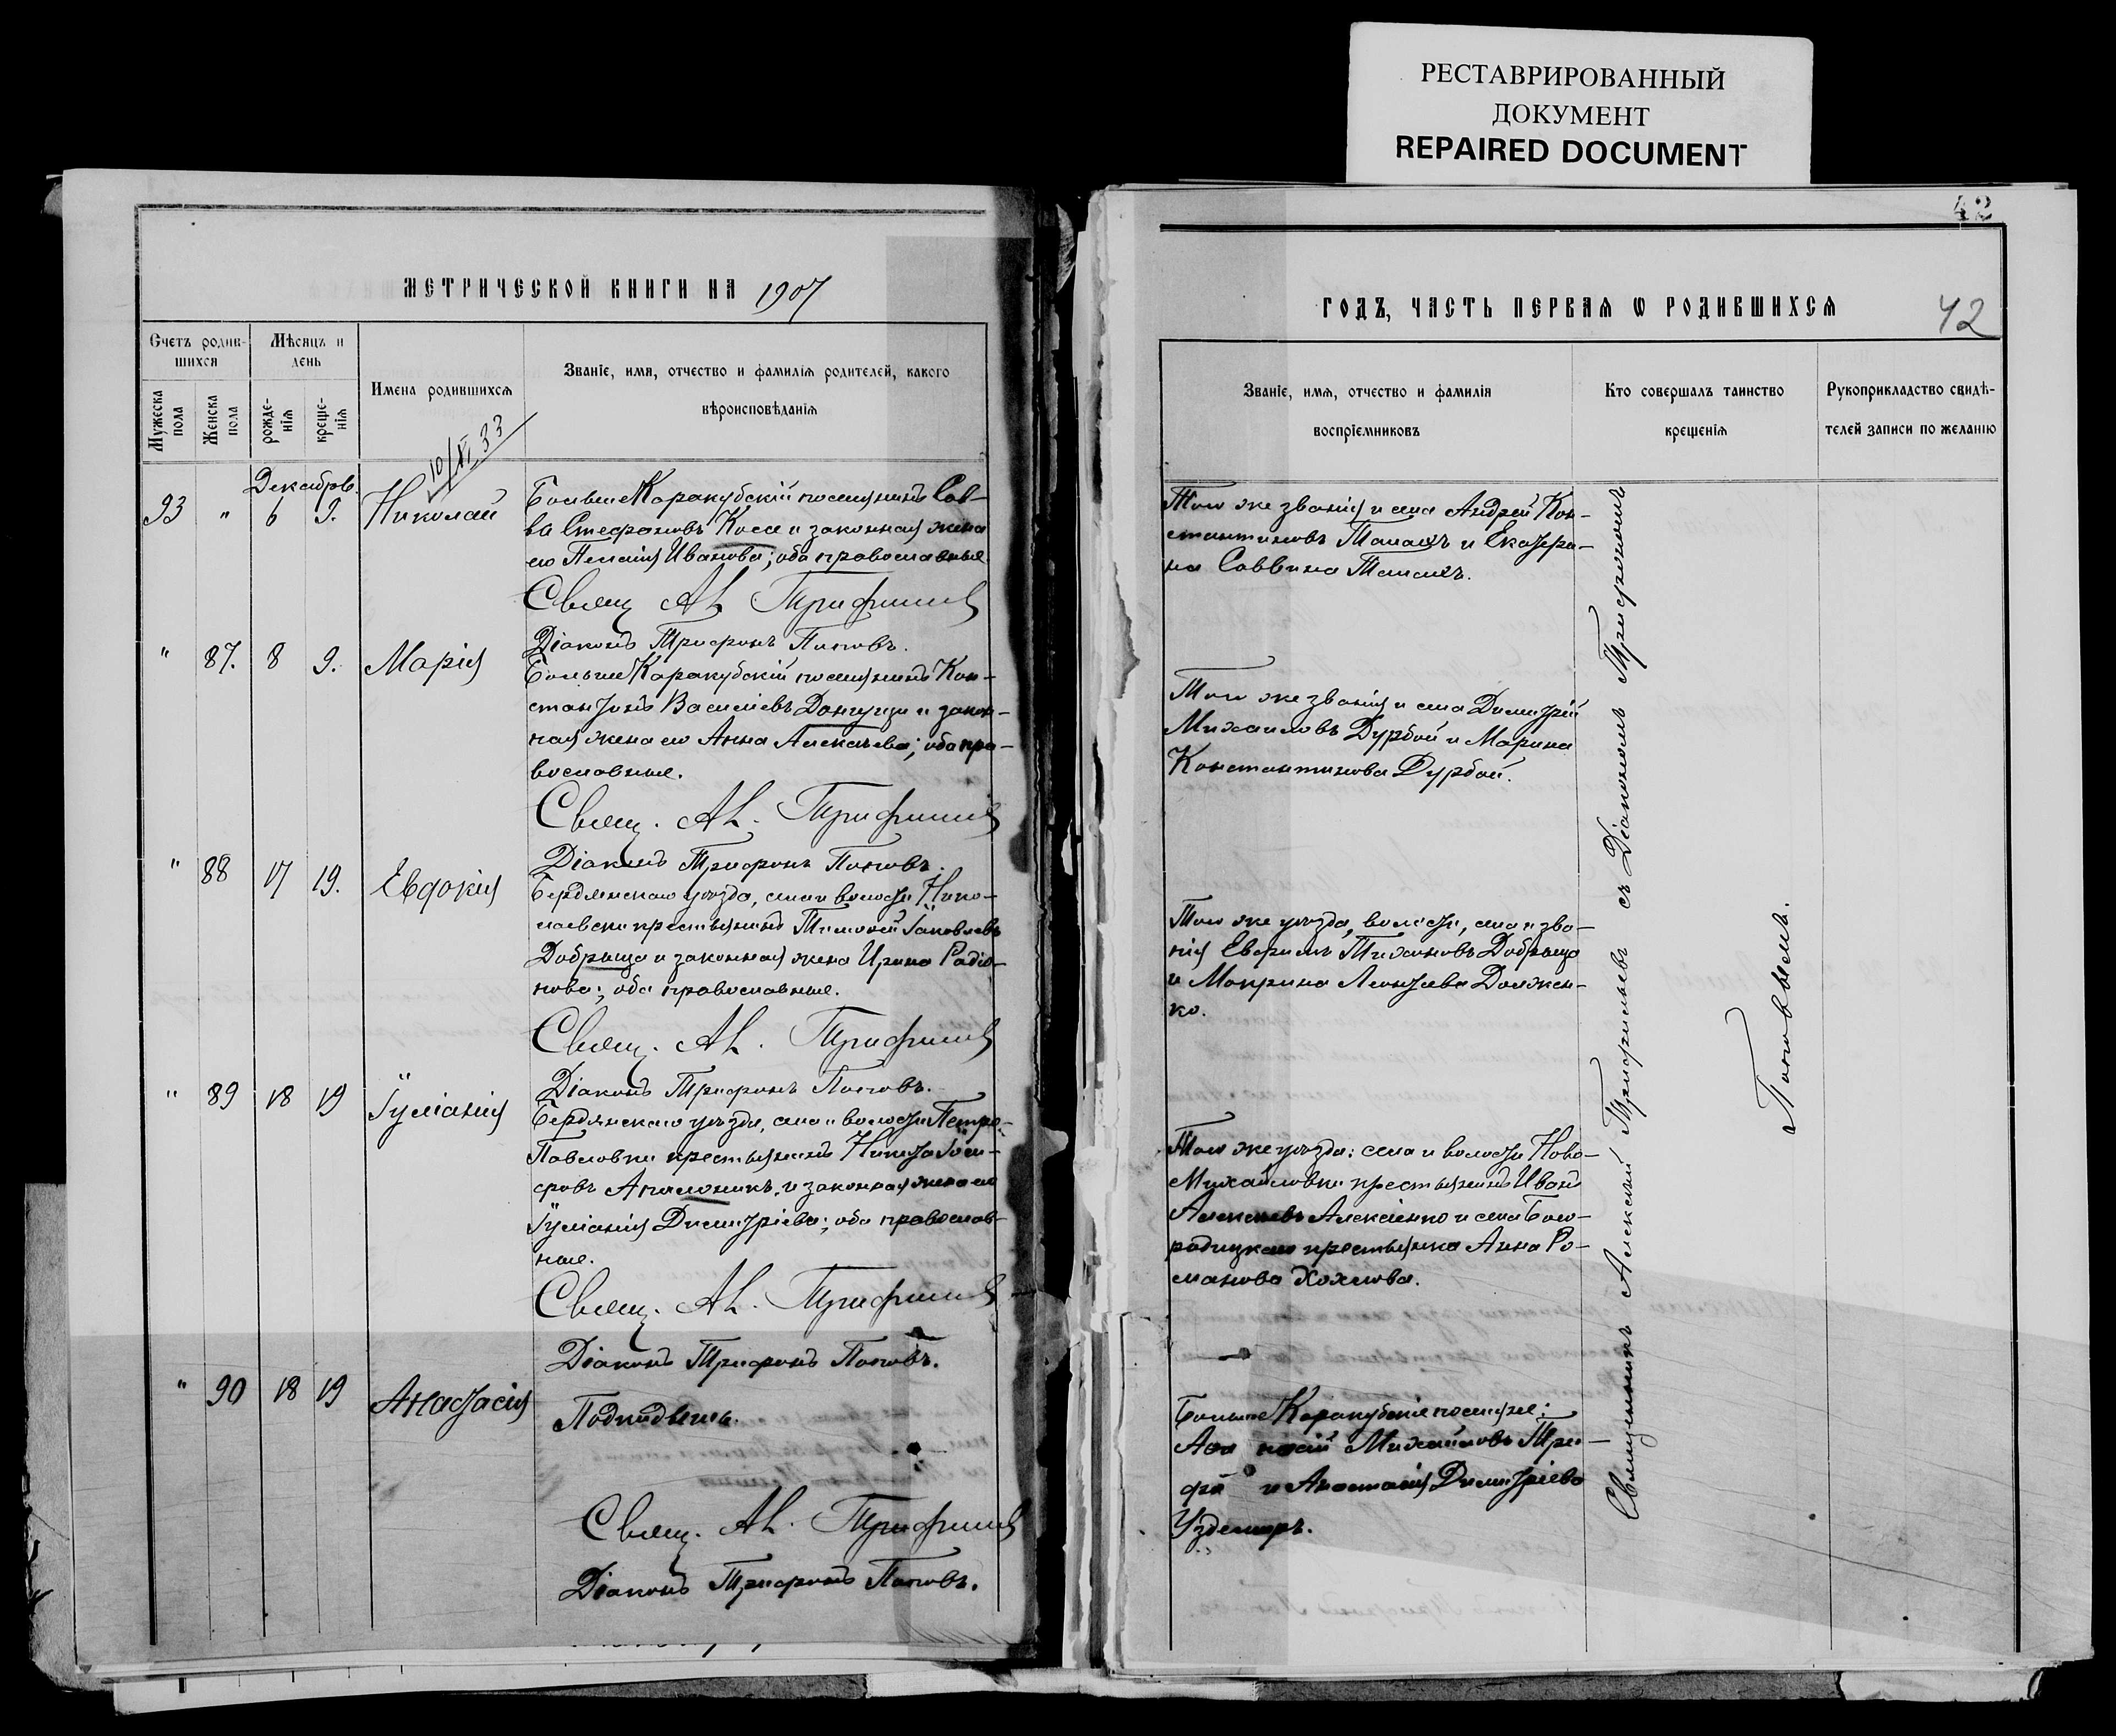 РЕСТАВРИРОВАННЫЙ
ДОКУМЕНТ
REPAIRED DOCUMENT
МЕТРИЧЕСКОЙ КНИГИ НА 1907
Счетъ родив-
шихся
Мѣсяцъ и
день
Мужеска
пола
Женска
пола
рожде-
нія
креще-
нія
Имена родившихся
Званіе, имя, отчество и фамилія родителей, какого
вѣроисповѣданія
10/XI 33
Декабрь.
93 " 6 9. Николай
Больше Каракубскій поселянинъ Сав-
ва Стефановъ Косе и законная жена
его Пелагія Иванова; оба православные.
Свящ. Ал. Трифильев
Діаконъ Трифонъ Поповъ.
" 87. 8 9. Марія
Больше Каракубскій поселянинъ Кон-
стантинъ Василіевъ Донгузи и закон-
ная жена его Анна Алексѣева; оба пра-
вославные.
Свящ. Ал. Трифильев
Діаконъ Трифонъ Поповъ.
" 88 17 19. Евдокія
Бердянскаго уѣзда, села и волости Нико-
лаевки крестьянинъ Тимофей Іаковлевъ
Добрыца и законная жена Ирина Радіо-
нова; оба православные.
Свящ. Ал. Трифильев
Діаконъ Трифонъ Поповъ.
" 89 18 19 Іуліанія
Бердянскаго уѣзда, села и волости Петро-
Павловки крестьянинъ Никита
и законная жена его
Іуліанія Димитріева; оба православ-
ные.
Свящ. Ал. Трифильев
Діаконъ Трифонъ Поповъ.
" 90 18 19 Анастасія
Подкидышъ.
Свящ. Ал. Трифильев
Діаконъ Трифонъ Поповъ.
42
ГОДЪ, ЧАСТЬ ПЕРВАЯ Ѡ РОДИВШИХСЯ
42
Званіе, имя, отчество и фамилія
воспріемниковъ
Кто совершалъ таинство
крещенія
Рукоприкладство свидѣ-
телей записи по желанію
Того же званія и села Андрей Кон-
стантиновъ Талахъ и Екатери-
на Саввина Талахъ.
Того же званія и села Димитрій
Михаиловъ Дурбай и Марина
Константинова Дурбай.
Того же уѣзда, волости, села и зва-
нія Евфимъ Тихоновъ Добрыца
и Макрина Леонтіева Должен-
ко.
Того же уѣзда: села и волости Ново-
Михайловки крестьянинъ Иванъ
Алексѣевъ Алексѣенко и села Бого-
родицкаго крестьянка Анна Ро-
манова Хохлова.
Больше Каракубскіе поселяне:
Михайловъ Три-
и Анастасія Димитріева
Уздемиръ.
Священникъ Алексѣй Трифильевъ съ Діакономъ Трифономъ
Поповымъ.